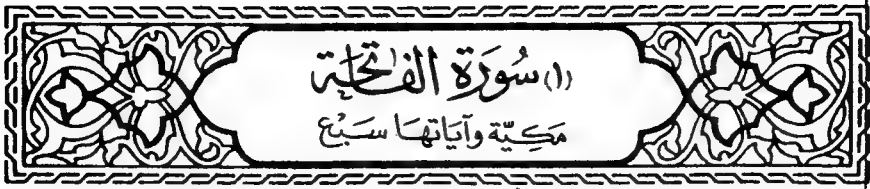 (١) سُورَة الفَاتِحَة
مَكِيَّة وَآيَاتهَا سَبْع